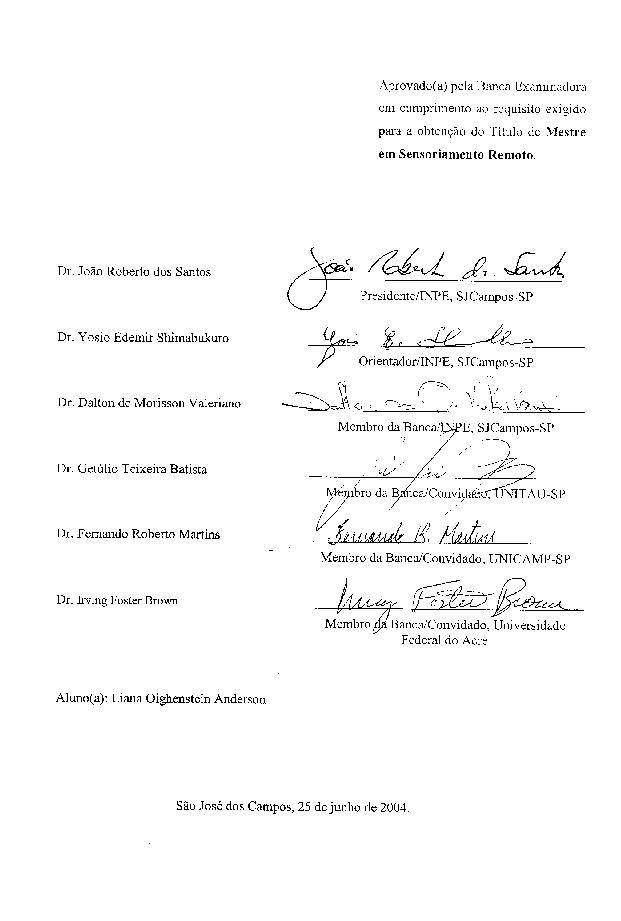 Aprovado(a) pela Banca Examinadora
em cumprimento ao requisito exigido
para a obtenção do Título de Mestre
em Sensoriamento Remoto.
Dr. João Roberto dos Santos
João Robert d. Sant
Presidente/INPE, SJCampos-SP
Dr. Yosio Edemir Shimabukuro
Orientador/INPE, SJCampos-SP
Dr. Dalton de Morisson Valeriano
Membro da Banca/INPE, SJCampos-SP
Dr. Getúlio Teixeira Batista
Membro da Banca/Convidado, UNITAU-SP
Dr. Fernando Roberto Martins
Fernando R. Martins
Membro da Banca/Convidado, UNICAMP-SP
Dr. Irving Foster Brown
Irving Foster Brown
Membro da Banca/Convidado, Universidade
Federal do Acre
Aluno(a): Liana Oighenstein Anderson
São José dos Campos, 25 de junho de 2004.